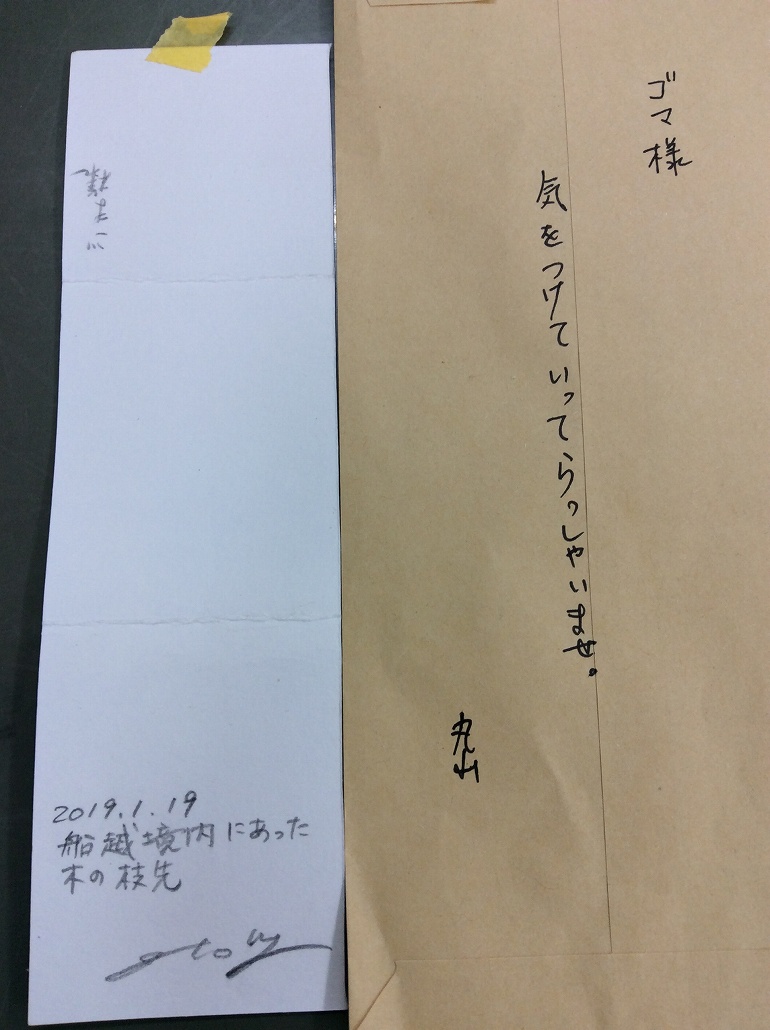 ゴマ様
気をつけていってらっしゃいませ。
丸山
2019.1.19
船越境内にあった
木の枝先